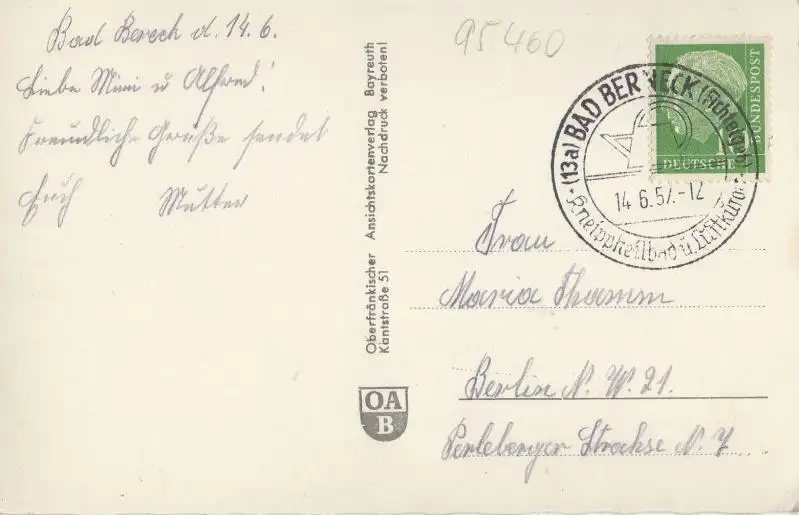 Bad Bereck d. 14.6.
Liebe Mimi u Alfred!
Freundliche Grüße sendet
Euch Mutter
Oberfränkischer Ansichtskartenverlag Bayreuth
Kantstraße 51 Nachdruck verboten!
OA
B
95.460
BUNDESPOST
10
DEUTSCHE
(13a) BAD BERNECK (Fichtelgeb)
14.6.57.-12
Kneippheilbad u. Luftkurort
Frau
Maria Thamm
Berlin N.W. 21.
Perleberger Strahse N. 7